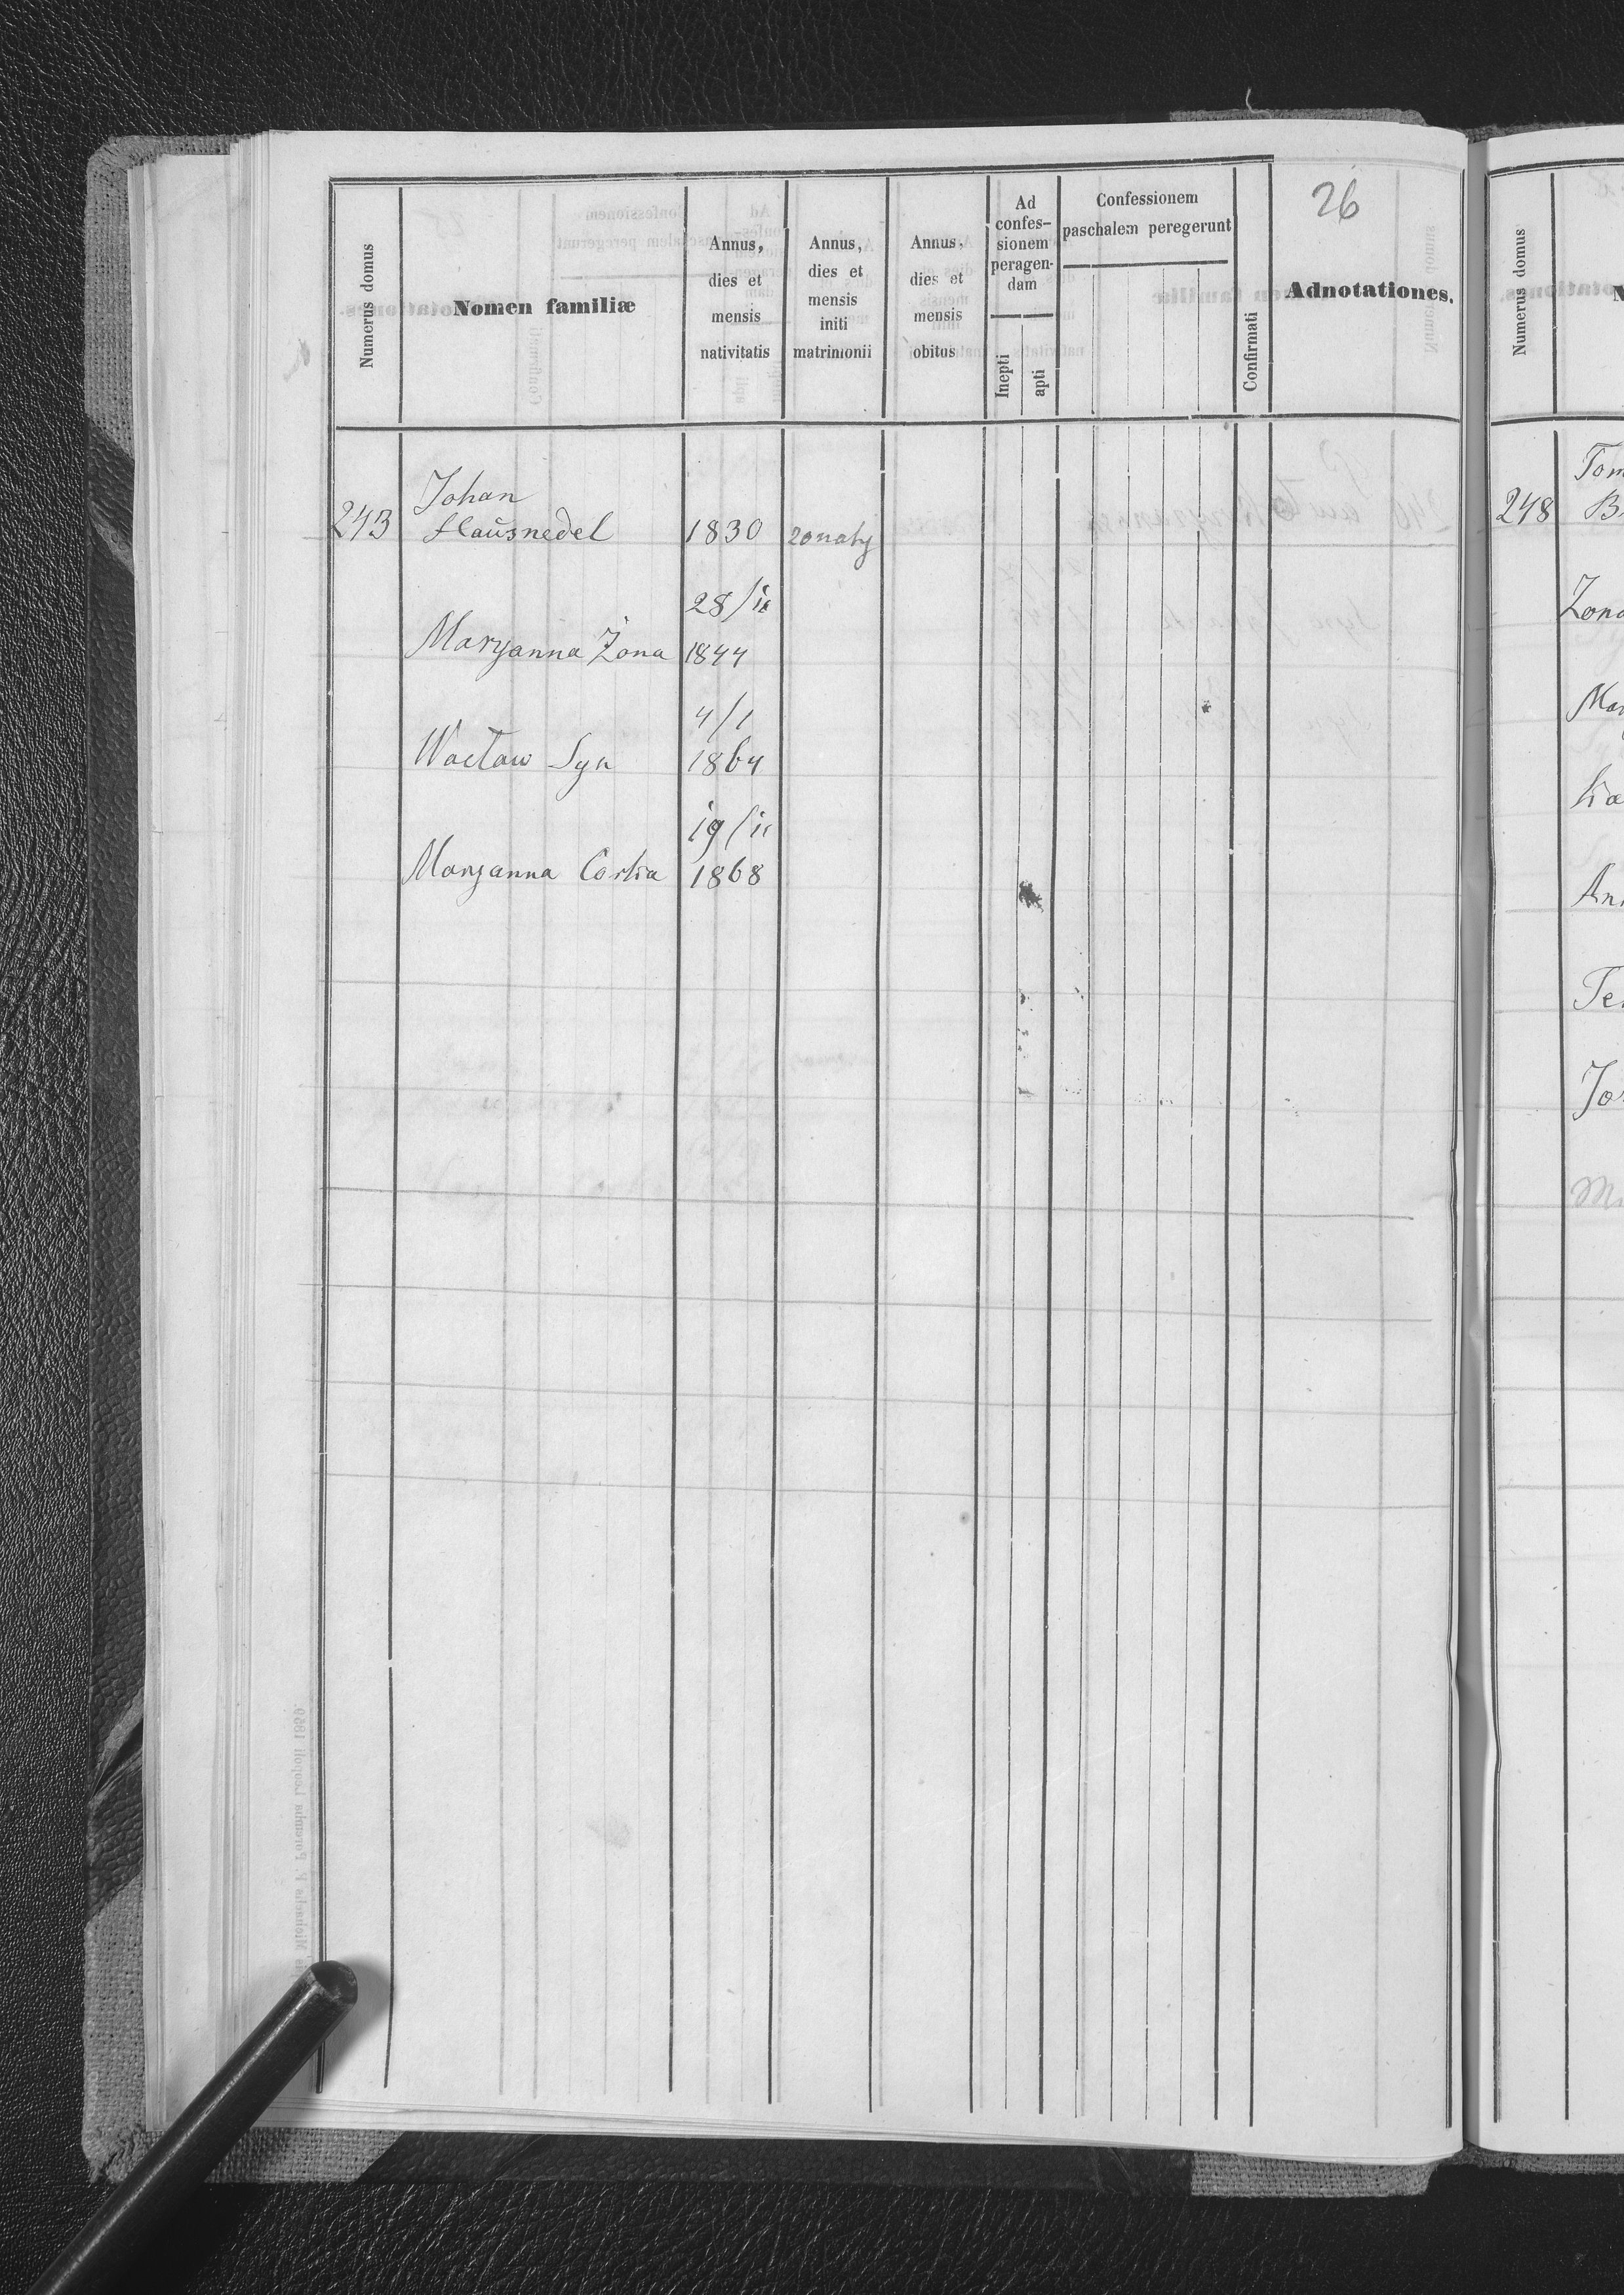 26
Numerus domus
Nomen familiæ
Annus,
dies et
mensis
nativitatis
Annus,
dies et
mensis
initi
matrimonii
Annus,
dies et
mensis
obitus
Ad
confes-
sionem
peragen-
dam
Inepti
apti
Confessionem
paschalem peregerunt
Confirmati
Adnotationes.
Johan
243 Hausnedel 1830 zonaty
28/ix
Maryanna Żona 1844
4/1
Wacław Syn 1864
19/ii
Maryanna Corka 1868
Numerus domus
N
Tom
248 B
Zona
Mar
Ka
Ann
Te
Jo